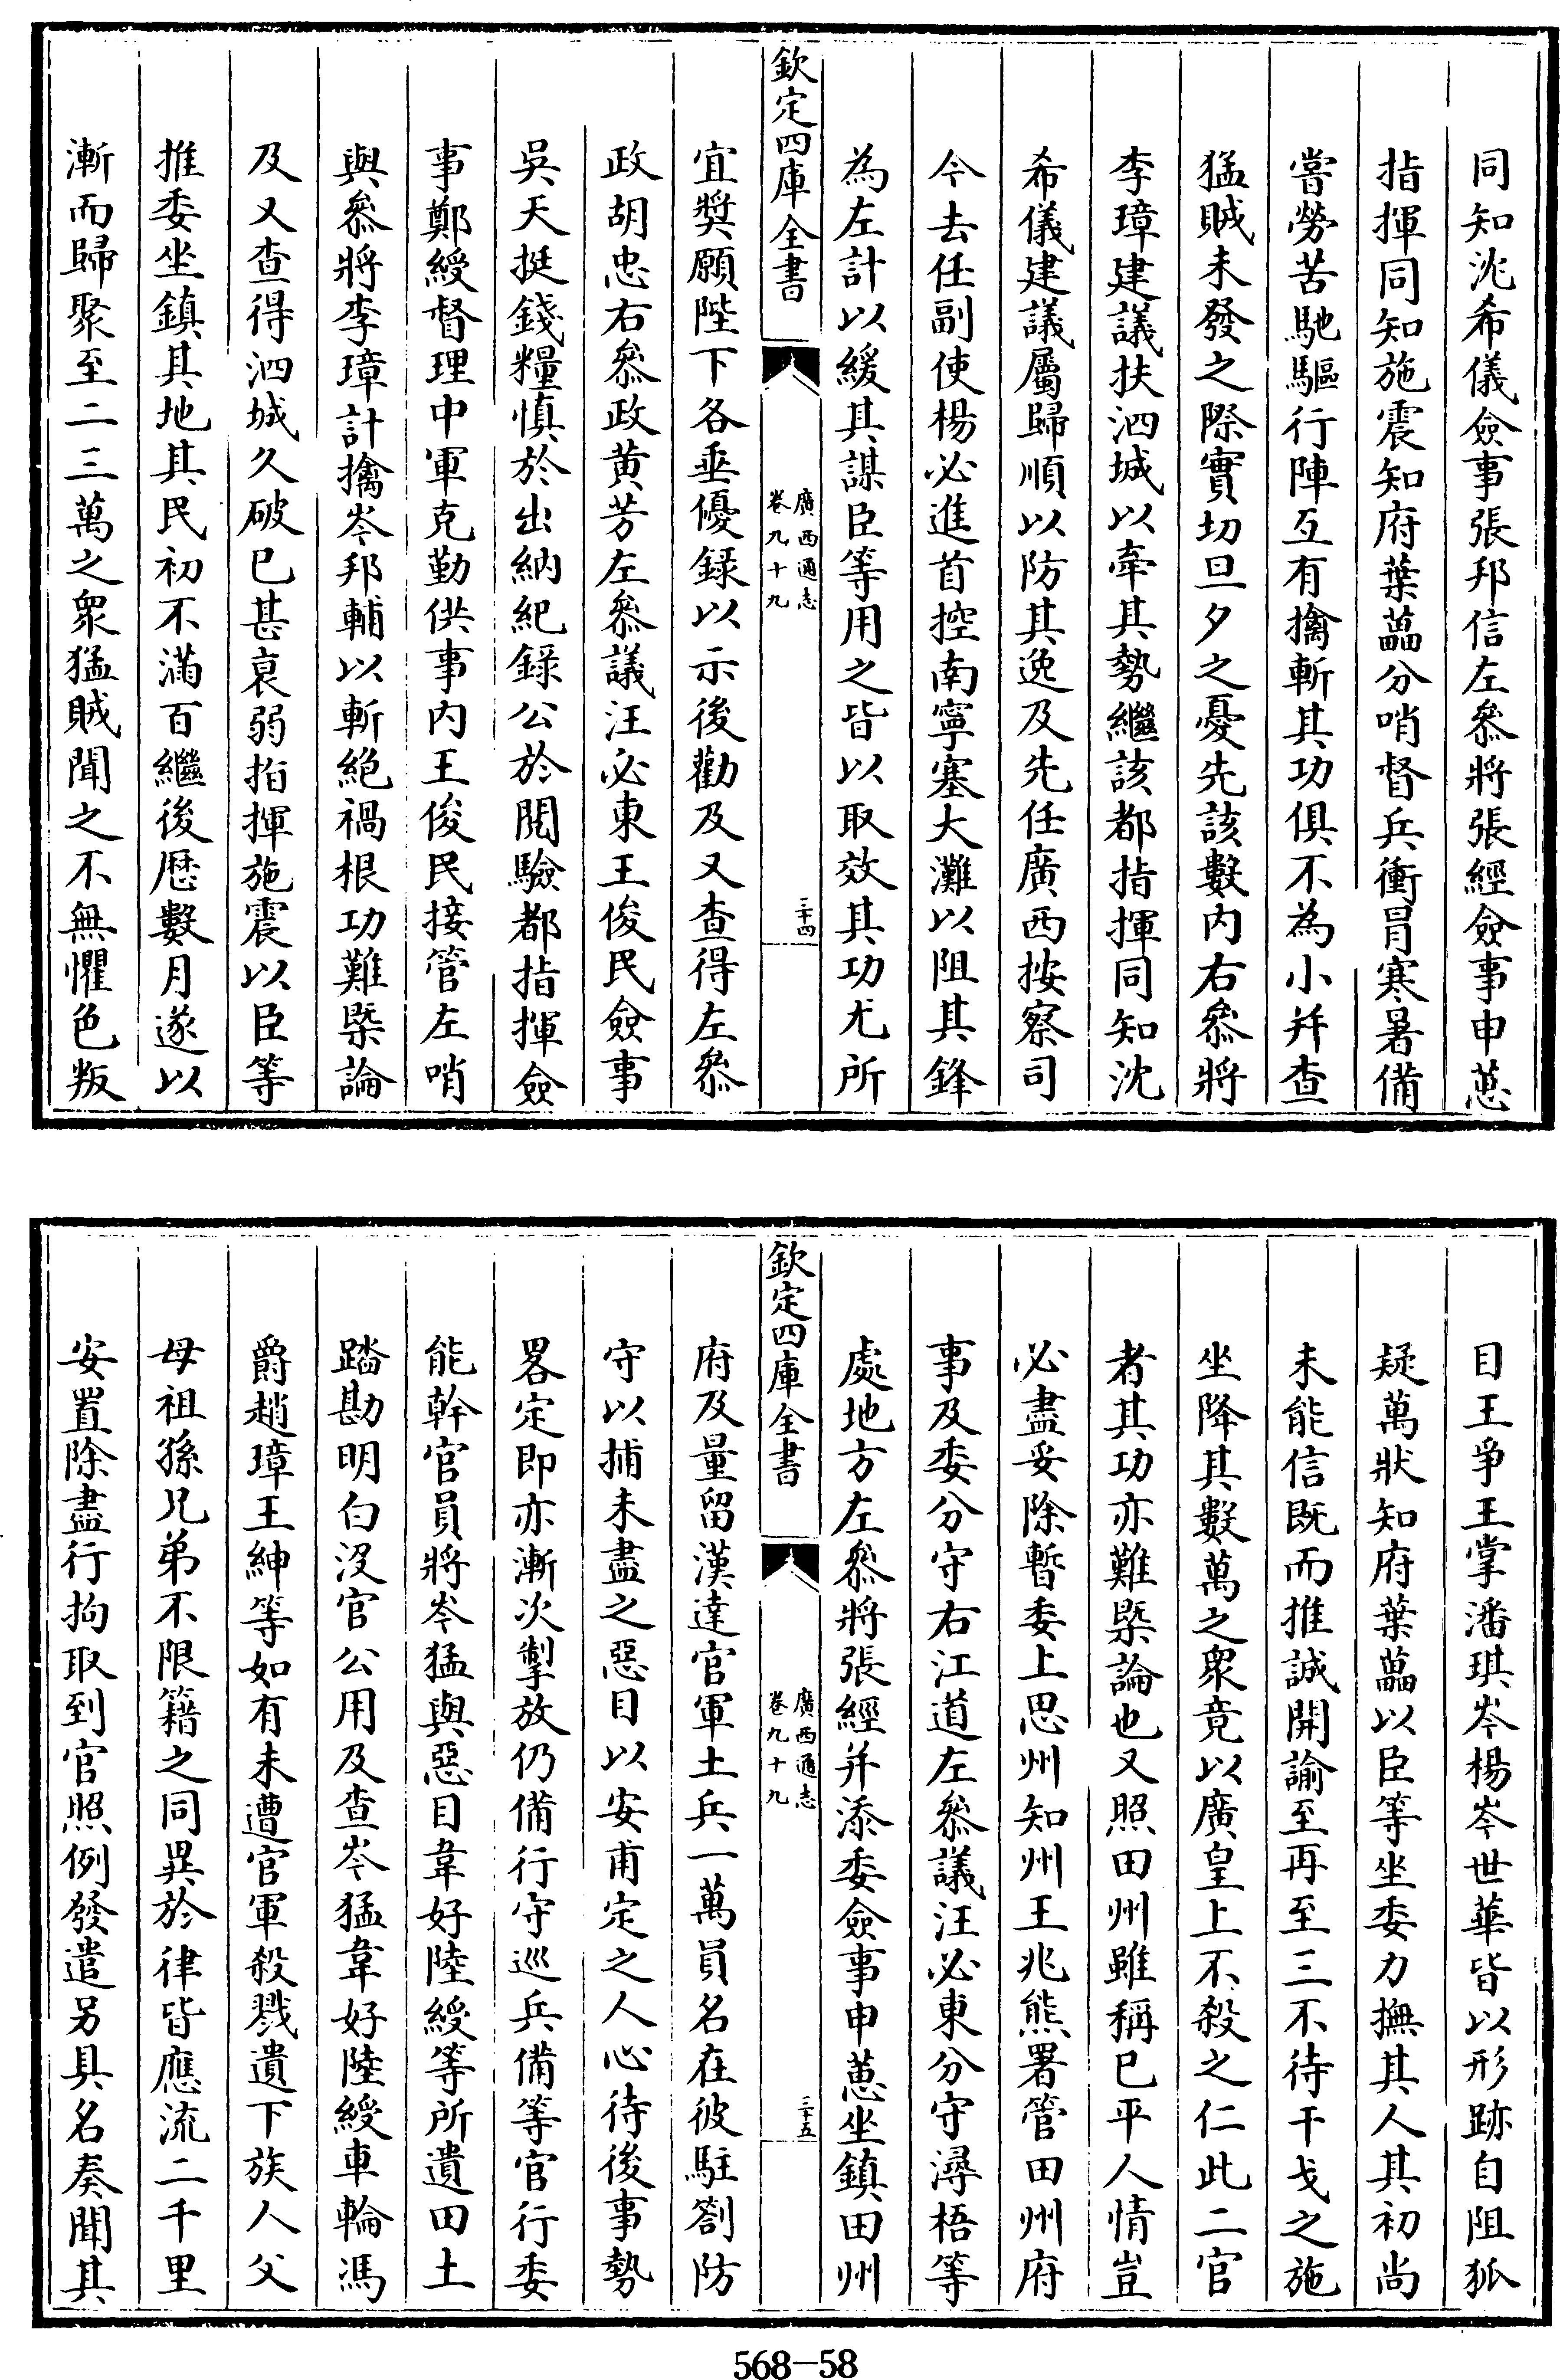 同知沈希儀僉事張邦信左叅將張經僉事申惪
指揮同知施震知府葉藟分哨督兵衝冒寒暑備
嘗勞苦馳驅行陣互有擒斬其功俱不為小并查
猛賊未發之際實切旦夕之憂先該數内右叅將
李璋建議扶泗城以牽其勢繼該都指揮同知沈
希儀建議屬歸順以防其逸及先任廣西按察司
今去任副使楊必進首控南寧塞大灘以阻其鋒
為左計以緩其謀臣等用之皆以取效其功尤所
欽定四庫全書
廣西通志
卷九十九
三十四
宜奬願陛下各垂優録以示後勸及又查得左叅
政胡忠右叅政黄芳左叅議汪必東王俊民僉事
吳天挺錢糧慎於出納紀錄公於閱驗都指揮僉
事鄭綬督理中軍克勤供事内王俊民接管左哨
與叅將李璋計擒岑邦輔以斬絶禍根功難槩論
及又查得泗城久破已甚哀弱指揮施震以臣等
推委坐鎮其地其民初不滿百繼後歴數月遂以
漸而歸聚至二三萬之衆猛賊聞之不無懼色叛
目王爭王掌潘琪岑楊岑世華皆以形跡自阻狐
疑萬狀知府葉藟以臣等坐委力撫其人其初尚
未能信既而推誠開諭至再至三不待干戈之施
坐降其數萬之衆竟以廣皇上不殺之仁此二官
者其功亦難槩論也又照田州雖稱已平人情豈
必盡妥除暫委上思州知州王兆熊署管田州府
事及委分守右江道左叅議汪必東分守潯梧等
處地方左叅將張經并添委僉事申惪坐鎮田州
欽定四庫全書
廣西通志
卷九十九
三十五
府及量留漢達官軍土兵一萬員名在彼駐劄防
守以捕未盡之惡目以安甫定之人心待後事勢
畧定即亦漸次掣放仍備行守巡兵備等官行委
能幹官員將岑猛與惡目韋好陸綬等所遺田土
踏勘明白沒官公用及查岑猛韋好陸綬車輪馮
爵趙璋王紳等如有未遭官軍殺戮遺下族人父
母祖孫兄弟不限籍之同異於律皆應流二千里
安置除盡行拘取到官照例發遣另具名奏聞其
568-58